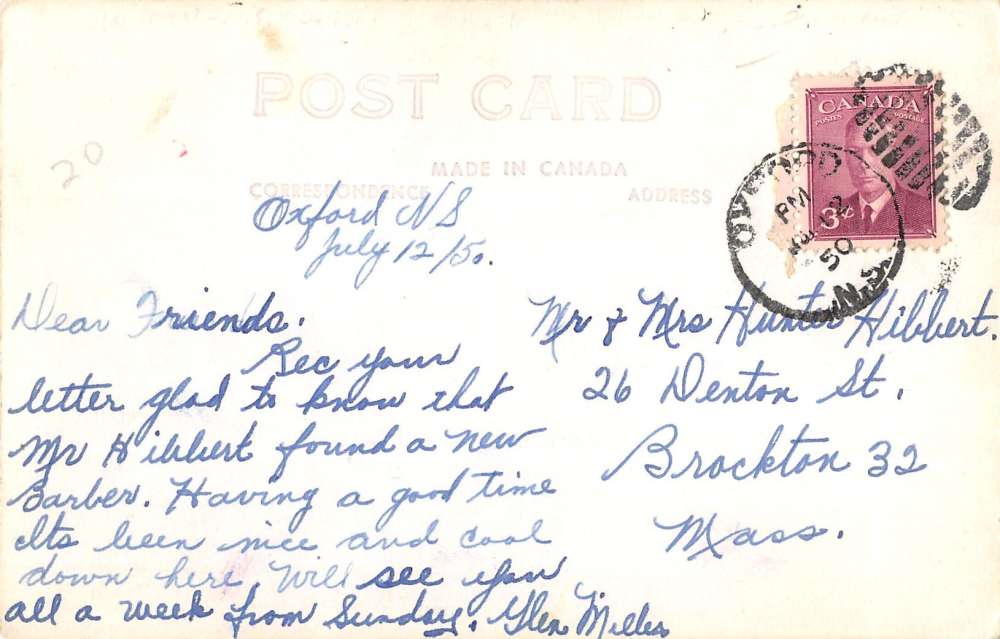 20
POST CARD
MADE IN CANADA
CORRESPONDENCE
ADDRESS
CANADA
POSTES POSTAGE
3¢
OXFORD
PM
12
50
N.S.
Oxford NS
July 12/50.
Dear Friends.
Rec your
letter glad to know that
Mr Hibbert found a new
Barber. Having a good time
Its been nice and cool
down here. Will see you
all a week from Sunday. Glen Miller
Mr & Mrs Hunter Hibbert.
26 Denton St.
Brockton 32
Mass.